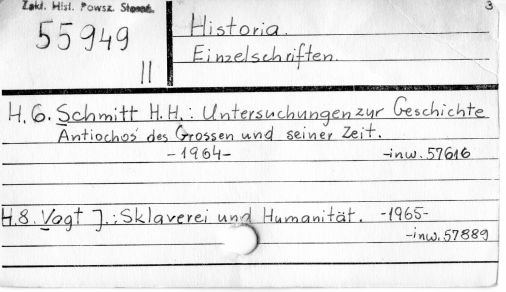 Zakł. Hist. Powsz. Staroż.
3
55949
II
Historia.
Einzelschriften.
H.6. Schmitt H.H.: Untersuchungen zur Geschichte
Antiochos' des Grossen und seiner Zeit.
-1964- -inw. 57616
H.8. Vogt J.: Sklaverei und Humanität. -1965-
-inw. 57889